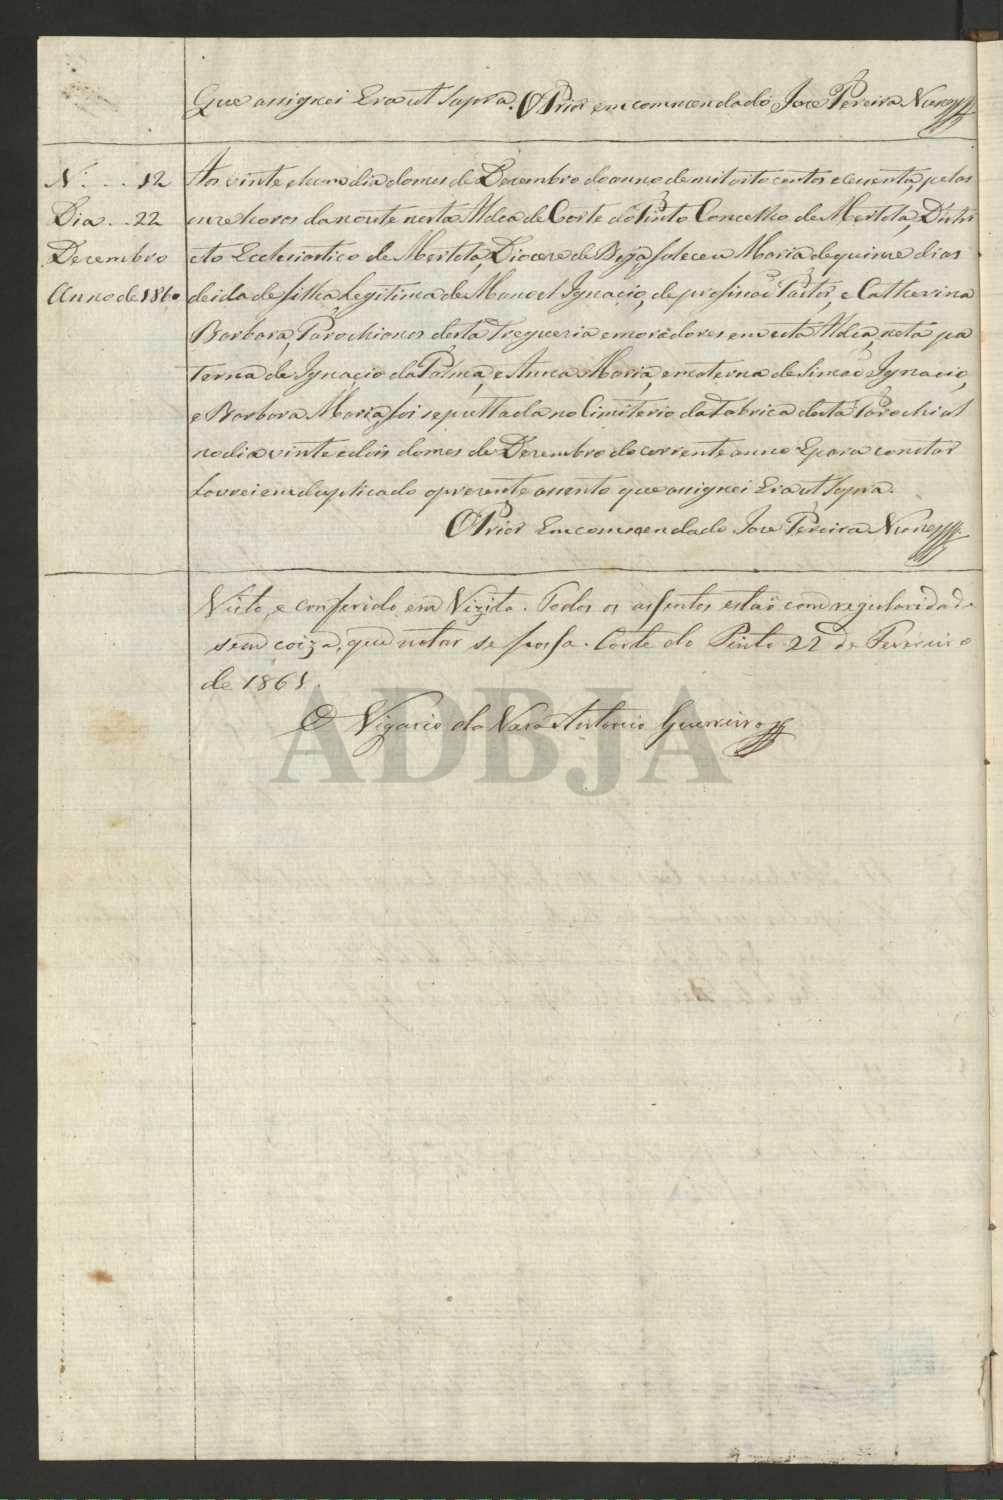 Que assignei Era ut Supra. O Prior emcommendado Joze Pereira Nunes
N.º ... 12
Dia ... 22
Dezembro
Anno de 1860
Aos vinte e hum dia do mes de Dezembro do anno de mil oito centos e secenta pelas
onze horas da noute nesta Aldea de Corte do Pinto Concelho de Mertola, Distri
cto Eclesiastico de Mertola, Diocese de Beja, faleceu Maria de quinze dias
de idade filha Legitima de Manoel Ignacio, de profissaõ Pastor, e Catherina
Barbara, Parochianos desta Freguezia e moradores em esta Aldea, neta pa
terna de Ignacio da Palma, e Anna Maria, e materna de Simaõ Ignacio,
e Barbara Maria, foi sepultada no Cimiterio da Fabrica desta Parochial
no dia vinte e dois do mes de Dezembro do corrente anno E para constar
Lavrei em duplicado o prezente assento que assignei Era ut Supra.
O Prior Emcommendado Joze Pereira Nunes
Visto, e conferido em Vizita. Todos os assentos estaõ com regularidade
sem coiza, que notar se possa. Corte do Pinto 22 de Fevereiro
de 1861.
O Vigario da Vara Antonio Guerreiro
ADBJA